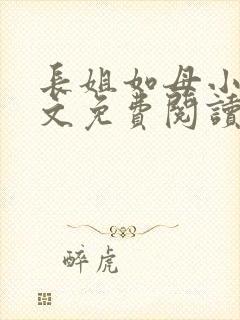 長姐如母小
文免費閱讀
醉虎